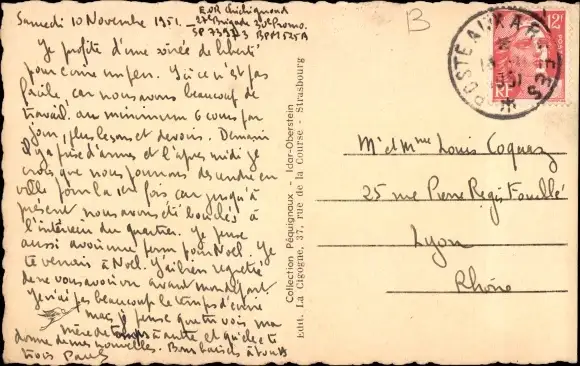 Samedi 10 Novembre 1951.
EOR
27e Brigade 30e Promo.
SP 73
BPM 525A
B
POSTE AUX ARMEES
12F
RF
Je profite d'une soirée de liberté
pour écrire un peu. Ici ce n'est pas
facile car nous avons beaucoup de
travail au minimum 6 cours par
jour, plus leçons et devoirs. Demain
il y a prise d'armes et l'après midi je
crois que nous pourrons descendre en
ville pour la 1ère fois car jusqu'à
présent nous avons été bouclés à
l'intérieur du quartier. Je pense
aussi avoir une perm pour Noël. Je
te verrais à Noël. J'ai bien regretté
de ne vous avoir vu avant mon départ
Je n'ai pas beaucoup le temps d'écrire
mais je pense que tu vois ma
mère de temps à autre et qu'elle te
donne de mes nouvelles. Bons baisers à tous
trois Paul
Collection Péquignaux - Idar-Oberstein
Edit. La Cigogne, 37, rue de la Course - Strasbourg
Mr et Mme Louis Coquaz
25 rue Pierre Regis Fouillé
Lyon
Rhône